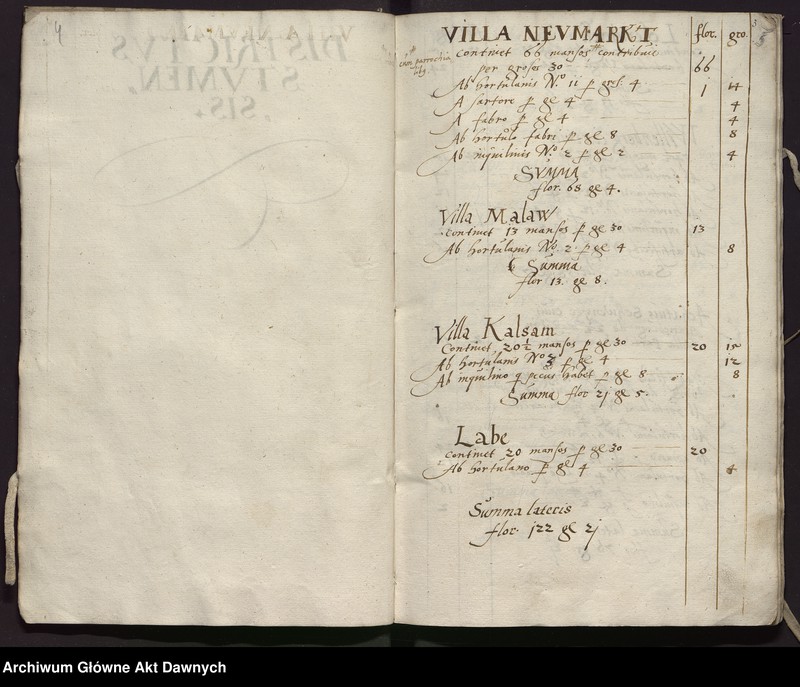 4
VILLA NEVMARKT flor. gro. 5
Continet 66 mansos contribuit
per grosos 30 66
Ab hortulanis No. 11 p gros. 4 1 14
A sartore p gr 4 4
A fabro p gr 4 4
Ab hortulo fabri p gr 8 8
Ab inquilinis No. 2 p gr 2 4
SUMMA
flor. 68 gr 4.
Villa Malaw
Continet 13 mansos p gr 30 13
Ab hortulanis No. 2 p gr 4 8
Summa
flor 13. gr 8.
Villa Kalsam
Continet 20½ mansos p gr 30 20 15
Ab hortulanis No 3 p gr 4 12
Ab inquilino q pecus habet p gr 8 8
Summa flor 21 gr 5.
Labe
Continet 20 mansos p gr 30 20
Ab hortulano p gr 4 4
Summa lateris
flor. 122 gr 21
Archiwum Główne Akt Dawnych